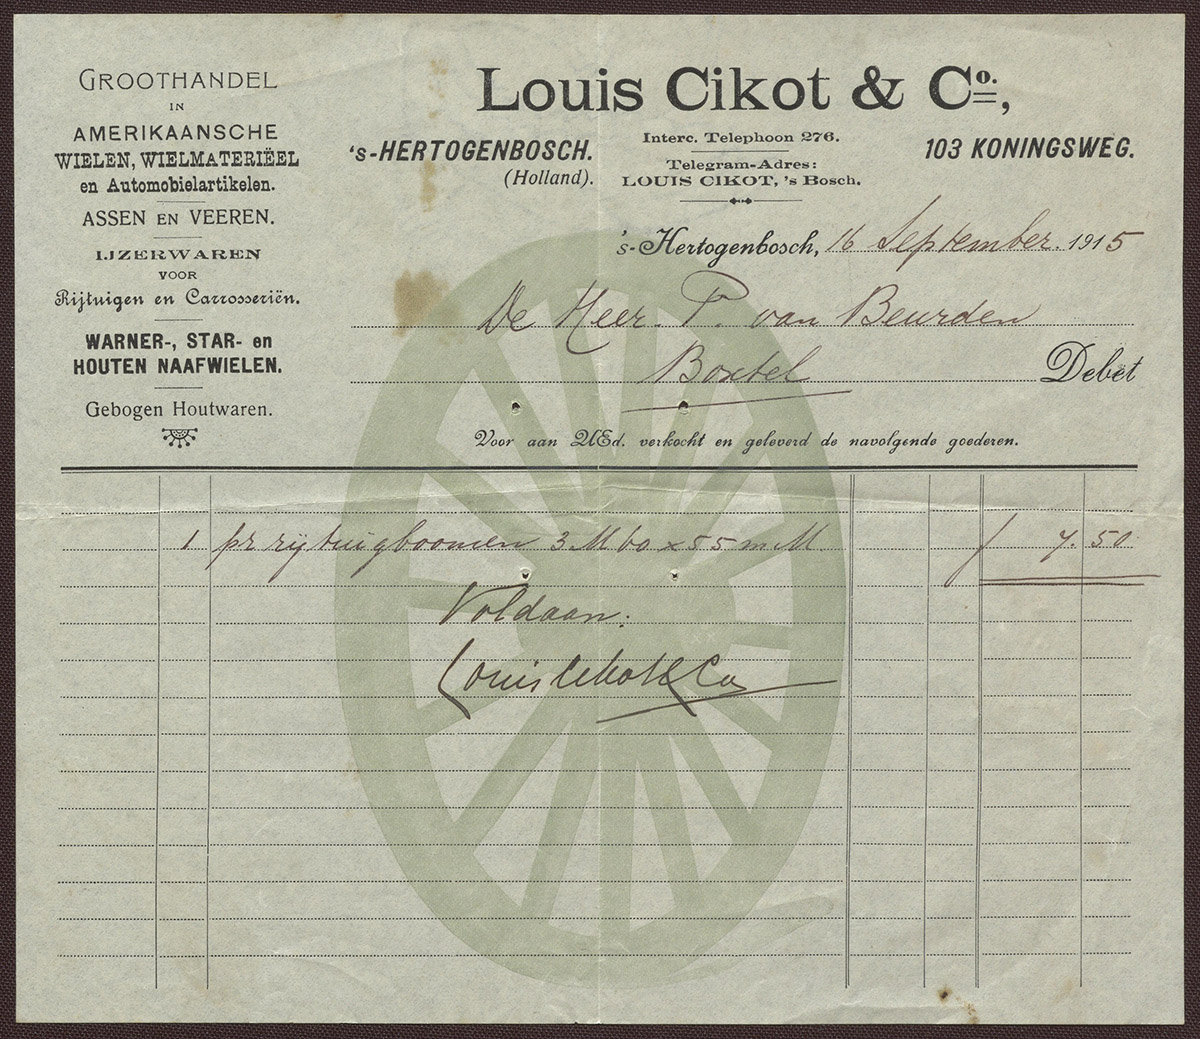 GROOTHANDEL
IN
AMERIKAANSCHE
WIELEN, WIELMATERIËEL
en Automobielartikelen.
ASSEN EN VEEREN.
IJZERWAREN
VOOR
Rijtuigen en Carrosseriën.
WARNER-, STAR- en
HOUTEN NAAFWIELEN.
Gebogen Houtwaren.
Louis Cikot & Co.,
's-HERTOGENBOSCH.
(Holland).
Interc. Telephoon 276.
Telegram-Adres:
LOUIS CIKOT, 's Bosch.
103 KONINGSWEG.
's-Hertogenbosch, 16 September. 1915
De Heer. P. van Beurden
Boxtel Debet
Voor aan UEd. verkocht en geleverd de navolgende goederen.
1 pr rijtuigboomen 3 M 60 x 55 m.M ƒ 7.50
Voldaan:
Louis Cikot & Co